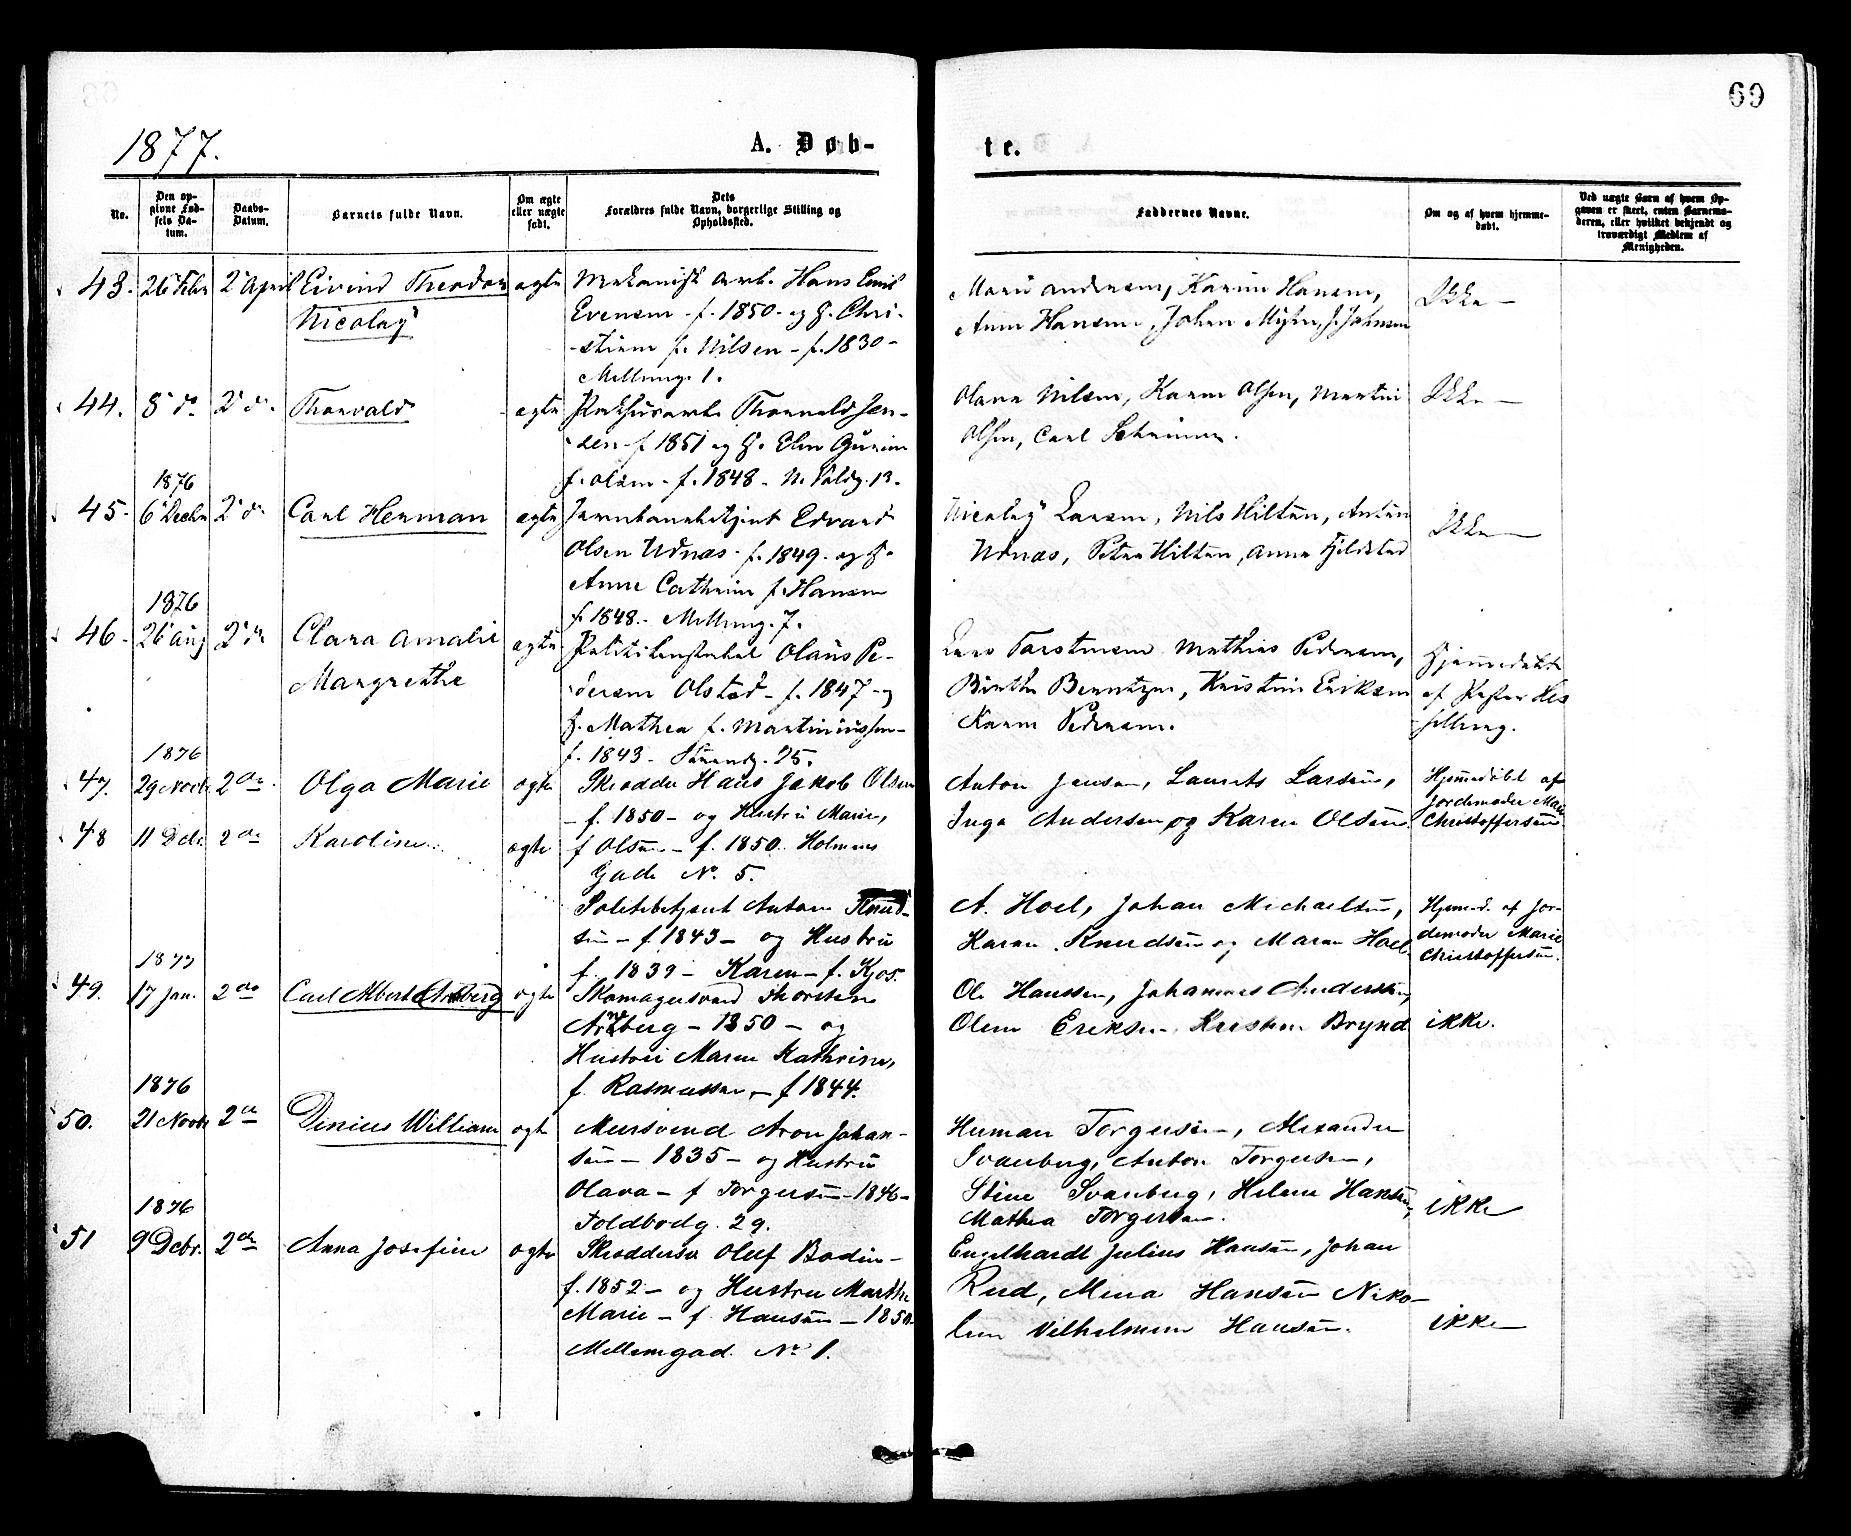 69
1877.
A. Døb-
te.
No.
Den op-
givne Fød-
sels Da-
tum.
Daabs-
Datum.
Barnets fulde Navn.
Om ægte
eller uægte
født.
Dets
Forældres fulde Navn, borgerlige Stilling og
Opholdssted.
Faddernes Navne.
Om og af hvem hjemme-
døbt.
Ved uægte Børn af hvem Op-
gaven er skeet, enten Barnemo-
deren, eller hvilket bekjendt og
troværdigt Medlem af
Menigheden.
43. 26 Febr 2 April Eivind Theodor ægte Mekanisk arb. Hans Emil
Nicolay
Evensen - f. 1850 - og H. Chri-
stiane f. Nilsen - f. 1830 -
Mellemg. 1.
Marie Andersen, Karine Hansen,
Anne Hansen, Johan J. Johnsen
Ikke -
44. 8 do 2 do Thorvald ægte Pakhusarb. Thorvald Jen-
sen f 1851 og H. Elen
f. Olsen - f. 1848 - N. 13.
Olava Nilsen, Karen Olsen, Martin
Olsen, Carl
Ikke -
1876
45. 6 Decbr 2 do Carl Herman ægte Jernbanebetjent Edvard
Olsen Udnæs - f. 1849 - og H.
Anne Cathrine f. Hansen
f. 1848 - Mellemg. 7.
Nicolay Larsen, Nils Hilton, Anton
Udnæs, Petra Hilton, Anna Fjeldstad
Ikke -
1876
46. 26 Aug 2 do Clara Amalie ægte Politikonstabel Olaus Pe-
Margrethe
dersen Olstad - f. 1847 - og
H. Mathea f. Martiniussen -
f. 1843 - Strandg. 25.
Lars Torstensen Mathias Pedersen,
Berthe Berntzen, Kristine Eriksen
Karen Pedersen.
Hjemmedøbt
af Pastor Hes
selberg.
1876
47. 29 Novbr 2 do Olga Marie ægte Skrædder Hans Jakob Olsen
- f. 1850 - og Hustru Marie,
f Olsen - f. 1850. Holmens
Gade No. 5.
Anton Jensen, Laurits Larsen,
Inga Andersen og Karen Olsen
Hjemmedøbt af
Jordemoder Marie
Christoffersen
48 11 Dcbr. 2 do Karoline ægte
Politibetjent Anton Knud-
sen - f 1843 - og Hustru
f. 1839 - Karen - f. Kjos.
A. Hoel, Johan Michaelsen,
Karen Knudsen og Maren Hoel
Hjemmd. af Jor-
demoder Marie
Christoffersen.
1877
49. 17 Jan. 2 do Carl Albert Arneberg ægte Skomagersvend Thorsten
Arneberg - 1850 - og
Hustru Maren Kathrine,
f. Rasmussen - f 1844.
Ole Hanssen, Johannes Anderssen,
Oline Eriksen, Kristine Brynd
ikke.
1876
50. 21 Novbr 2 do Dinius William ægte Mursvend Aron Johan-
sen - 1835 - og Hustru
Olava - f Torgersen - 1846 -
Toldbodg. 29.
Herman Torgersen, Alexander
Svanberg, Anton Torgersen,
Stine Svanberg, Helene Hansen,
Mathea Torgersen.
ikke
1876
51 9 Dcbr. 2 do Anna Josefine ægte Skræddersv. Oluf Bodin -
f. 1852 - og Hustru Marthe
Marie - f. Hansen - 1850.
Mellemgad. No 1.
Engelhardt Julius Hansen, Johan
Rud, Mina Hansen Niko-
line Vilhelmine Hansen.
ikke